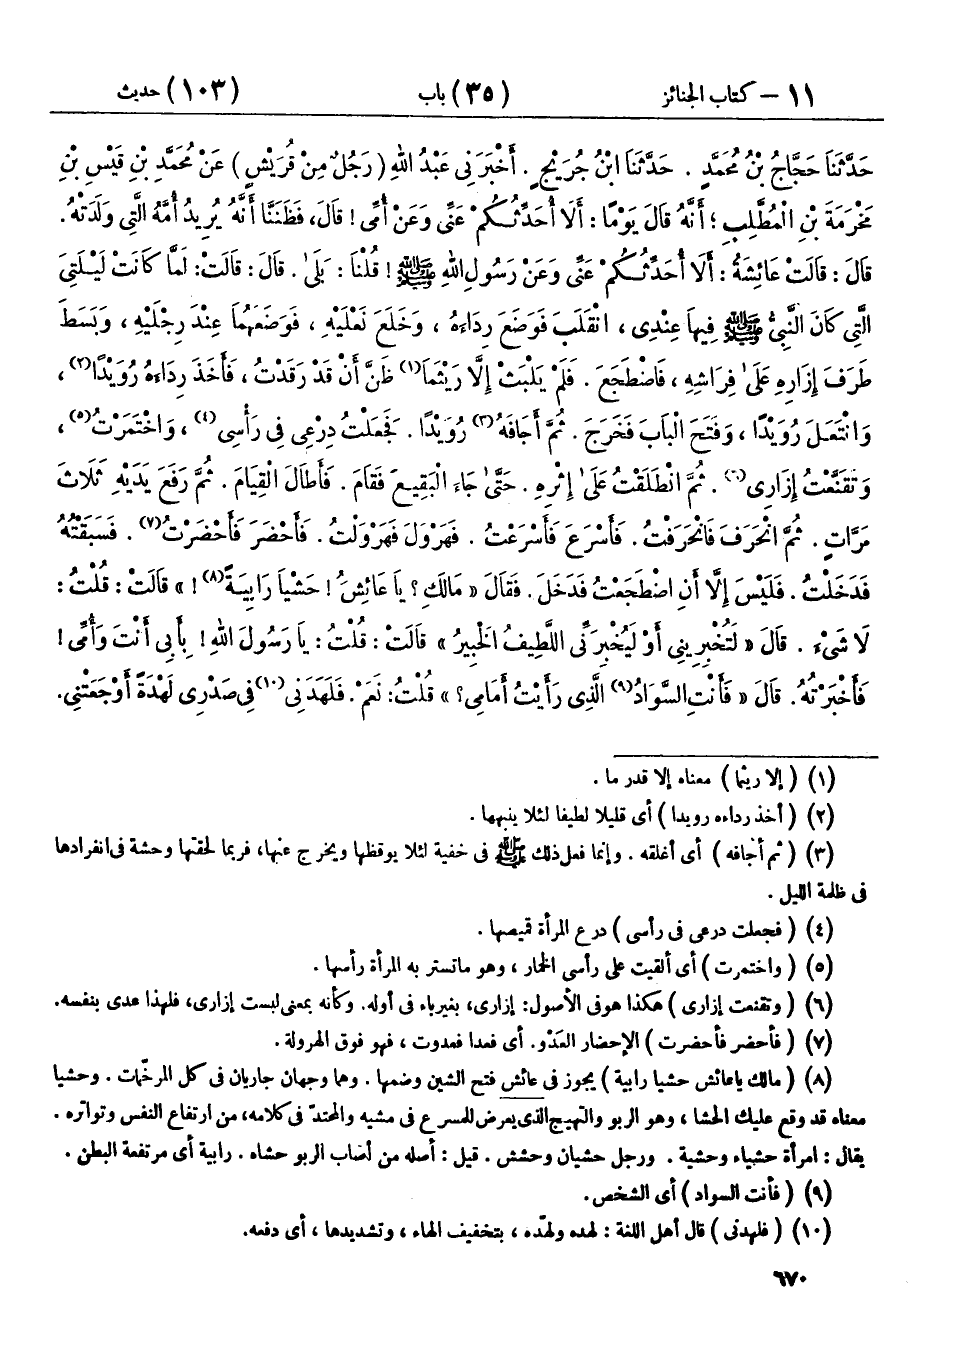 ١١ – كتاب الجنائز (٣٥) باب (١٠٣) حديث
حَدَّثَنَا حَجَّاجُ بْنُ مُحَمَّدٍ . حَدَّثَنَا ابْنُ جُرَيْجٍ . أَخْبَرَنِى عَبْدُ اللهِ ( رَجُلٌ مِنْ قُرَيْشٍ ) عَنْ مُحَمَّدِ بْنِ قَيْسِ بْنِ
مَخْرَمَةَ بْنِ الْمُطَّلِبِ ؛ أَنَّهُ قَالَ يَوْمًا : أَلَا أُحَدِّثُكُمْ عَنِّى وَعَنْ أُمِّى ! قَالَ، فَظَنَنَّا أَنَّهُ يُرِيدُ أُمَّهُ الَّتِى وَلَدَتْهُ.
قَالَ : قَالَتْ عَائِشَةُ : أَلَا أُحَدِّثُكُمْ عَنِّى وَعَنْ رَسُولِ اللهِ ﷺ ! قُلْنَا : بَلَىٰ . قَالَ : قَالَتْ: لَمَّا كَانَتْ لَيْلَتِىَ
الَّتِى كَانَ النَّبِىُّ ﷺ فِيهَا عِنْدِى ، انْقَلَبَ فَوَضَعَ رِدَاءَهُ ، وَخَلَعَ نَعْلَيْهِ ، فَوَضَعَهُمَا عِنْدَ رِجْلَيْهِ ، وَبَسَطَ
طَرَفَ إِزَارِهِ عَلَىٰ فِرَاشِهِ ، فَاضْطَجَعَ . فَلَمْ يَلْبَثْ إِلَّا رَيْثَمَا(١) ظَنَّ أَنْ قَدْ رَقَدْتُ ، فَأَخَذَ رِدَاءَهُ رُوَيْدًا(٢) ،
وَانْتَعَلَ رُوَيْدًا ، وَفَتَحَ الْبَابَ فَخَرَجَ . ثُمَّ أَجَافَهُ(٣) رُوَيْدًا . فَجَعَلْتُ دِرْعِى فِى رَأْسِى(٤) ، وَاخْتَمَرْتُ(٥) ،
وَتَقَنَّعْتُ إِزَارِى(٦) . ثُمَّ انْطَلَقْتُ عَلَىٰ إِثْرِهِ . حَتَّىٰ جَاءَ الْبَقِيعَ فَقَامَ . فَأَطَالَ الْقِيَامَ . ثُمَّ رَفَعَ يَدَيْهِ ثَلَاثَ
مَرَّاتٍ . ثُمَّ انْحَرَفَ فَانْحَرَفْتُ . فَأَسْرَعَ فَأَسْرَعْتُ . فَهَرْوَلَ فَهَرْوَلْتُ . فَأَحْضَرَ فَأَحْضَرْتُ(٧) . فَسَبَقْتُهُ
فَدَخَلْتُ . فَلَيْسَ إِلَّا أَنِ اضْطَجَعْتُ فَدَخَلَ . فَقَالَ « مَالَكِ ؟ يَا عَائِشُ ! حَشْيَا رَابِيَةً(٨) ! » قَالَتْ : قُلْتُ :
لَا شَىْءَ . قَالَ « لَتُخْبِرِينِى أَوْ لَيُخْبِرَنِّى اللَّطِيفُ الْخَبِيرُ » قَالَتْ : قُلْتُ : يَا رَسُولَ اللهِ ! بِأَبِى أَنْتَ وَأُمِّى !
فَأَخْبَرْتُهُ. قَالَ « فَأَنْتِ السَّوَادُ(٩) الَّذِى رَأَيْتُ أَمَامِى؟ » قُلْتُ: نَعَمْ. فَلَهَدَنِى(١٠) فِى صَدْرِى لَهْدَةً أَوْجَعَتْنِى.
(١) ( إلا ريثما ) معناه إلا قدر ما .
(٢) ( أخذ رداءه رويدا ) أى قليلا لطيفا لئلا ينبهها .
(٣) ( ثم أجافه ) أى أغلقه . وإنما فعل ذلك ﷺ فى خفية لئلا يوقظها ويخرج عنها، فربما لحقتها وحشة فى انفرادها
فى ظلمة الليل .
(٤) ( فجعلت درعى فى رأسى ) درع المرأة قميصها .
(٥) ( واختمرت ) أى ألقيت على رأسى الخمار ، وهو ما تستر به المرأة رأسها .
(٦) ( وتقنعت إزارى ) هكذا هو فى الأصول: إزارى، بغير باء فى أوله. وكأنه بمعنى لبست إزارى، فلهذا عدى بنفسه.
(٧) ( فأحضر فأحضرت ) الإحضار العَدْو. أى فعدا فعدوت ، فهو فوق الهرولة .
(٨) ( مالك يا عائش حشيا رابية ) يجوز فى عائش فتح الشين وضمها . وهما وجهان جاريان فى كل المرخّمات . وحشيا
معناه قد وقع عليك الحشا ، وهو الربو والتهيج الذى يعرض للمسرع فى مشيه والمحتدّ فى كلامه، من ارتفاع النفس وتواتره .
يقال : امرأة حشياء وحشية . ورجل حشيان وحشش . قيل : أصله من أصاب الربو حشاه . رابية أى مرتفعة البطن .
(٩) ( فأنت السواد ) أى الشخص.
(١٠) ( فلهدنى ) قال أهل اللغة : لهده ولهّده ، بتخفيف الهاء ، وتشديدها ، أى دفعه.
٦٧٠